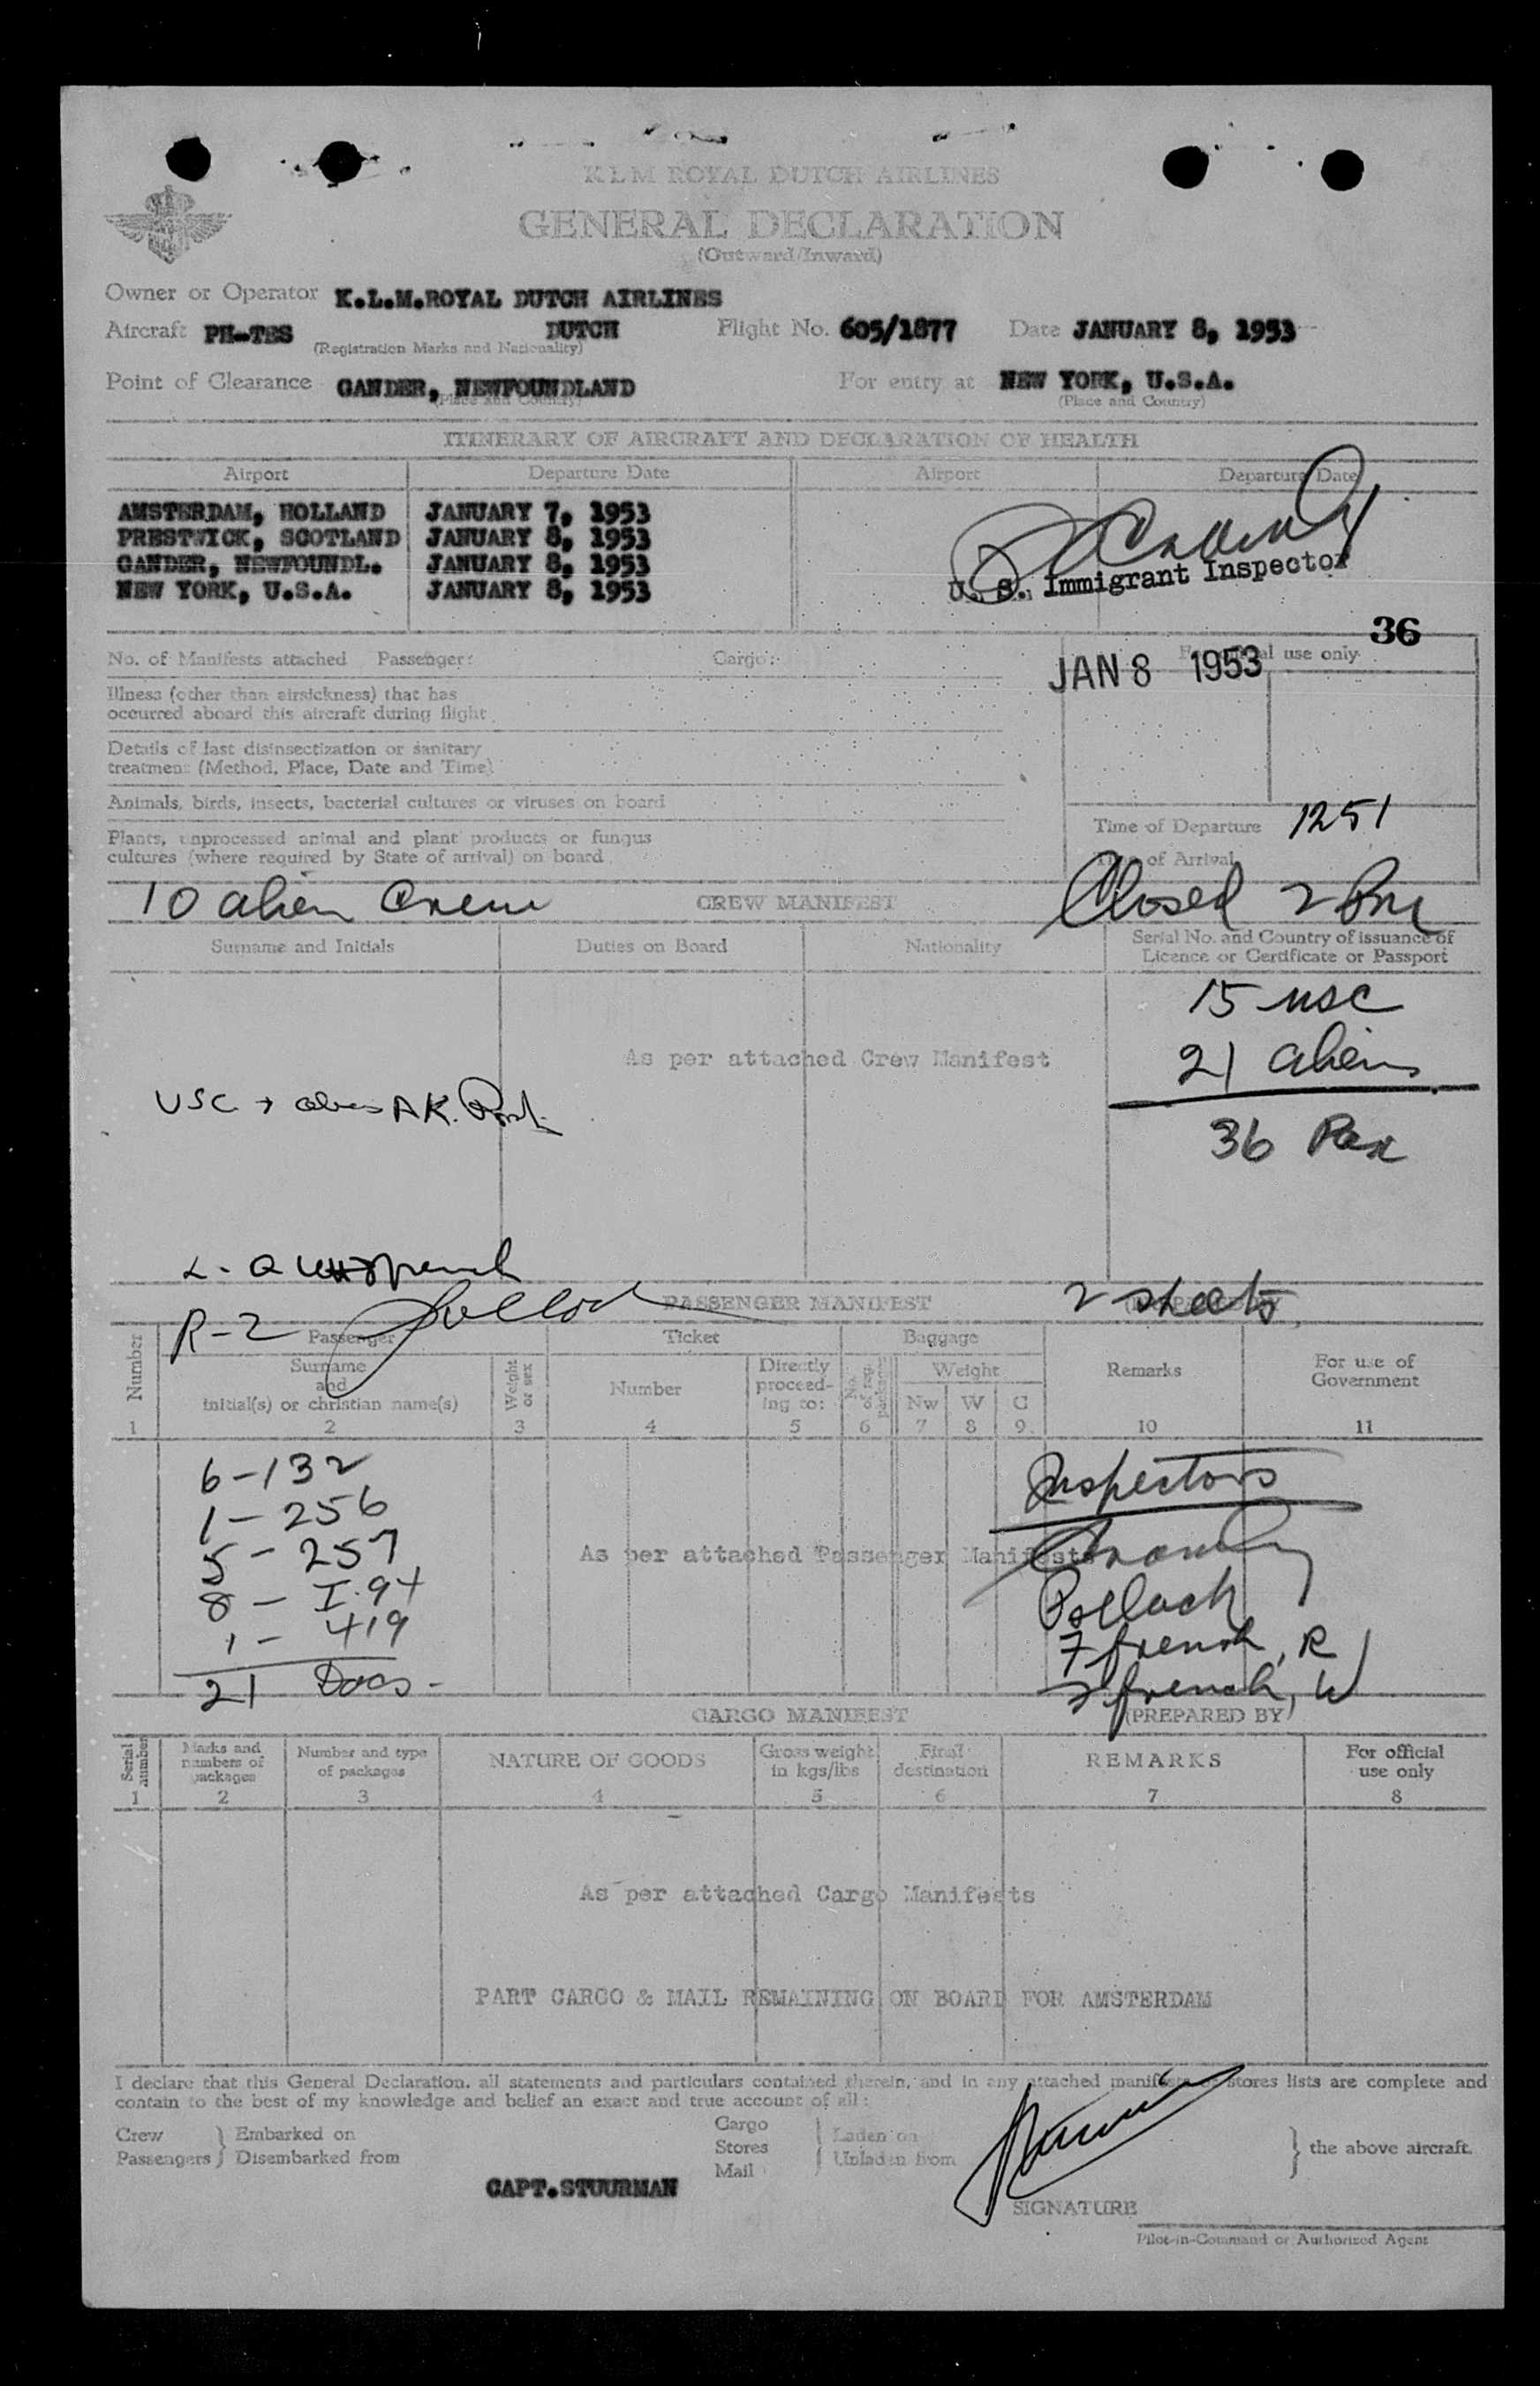 K.L.M. ROYAL DUTCH AIRLINES
GENERAL DECLARATION
(Outward/Inward)
Owner or Operator K.L.M.ROYAL DUTCH AIRLINES
Aircraft PH-TES DUTCH Flight No. 605/1877 Date JANUARY 8, 1953
(Registration Marks and Nationality)
Point of Clearance GANDER, NEWFOUNDLAND For entry at NEW YORK, U.S.A.
(Place and Country) (Place and Country)
ITINERARY OF AIRCRAFT AND DECLARATION OF HEALTH
Airport Departure Date Airport Departure Date
AMSTERDAM, HOLLAND JANUARY 7, 1953
PRESTWICK, SCOTLAND JANUARY 8, 1953
GANDER, NEWFOUNDL. JANUARY 8, 1953
NEW YORK, U.S.A. JANUARY 8, 1953
U. S. Immigrant Inspector
36
No. of Manifests attached Passenger: Cargo: For official use only
JAN 8 1953
Illness (other than airsickness) that has
occurred aboard this aircraft during flight
Details of last disinsectization or sanitary
treatment (Method, Place, Date and Time)
Animals, birds, insects, bacterial cultures or viruses on board
Plants, unprocessed animal and plant products or fungus
cultures (where required by State of arrival) on board
Time of Departure 1251
Time of Arrival
10 alien Crew CREW MANIFEST Closed 2 Pm
Surname and Initials Duties on Board Nationality Serial No. and Country of issuance of
Licence or Certificate or Passport
15 USC
21 aliens
36 Pax
As per attached Crew Manifest
USC + aliens A K.
R-2 Pollock PASSENGER MANIFEST 2 sheets
Number Passenger Ticket Baggage Remarks For use of
Government
Surname
and
initial(s) or christian name(s) Weight
or sex Number Directly
proceed-
ing to: No.
of reg.
packages Weight
Nw W C
1 2 3 4 5 6 7 8 9 10 11
6-132
1-256
5-257
8-I.94
1-419
21 Docs.
As per attached Passenger Manifests
Inspectors
Pollack
French, R
French, W
CARGO MANIFEST (PREPARED BY)
Serial
number Marks and
numbers of
packages Number and type
of packages NATURE OF GOODS Gross weight
in kgs/lbs Final
destination REMARKS For official
use only
1 2 3 4 5 6 7 8
As per attached Cargo Manifests
PART CARGO & MAIL REMAINING ON BOARD FOR AMSTERDAM
I declare that this General Declaration, all statements and particulars contained therein, and in any attached manifests or stores lists are complete and
contain to the best of my knowledge and belief an exact and true account of all:
Crew
Passengers } Embarked on
Disembarked from
Cargo
Stores
Mail } Laden on
Unladen from
} the above aircraft.
CAPT.STUURMAN
SIGNATURE
Pilot-in-Command or Authorized Agent